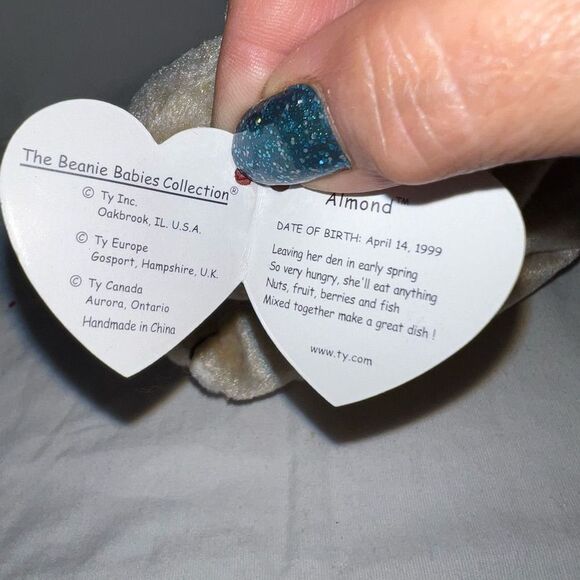 The Beanie Babies Collection®
© Ty Inc.
Oakbrook, IL. U.S.A.
© Ty Europe
Gosport, Hampshire, U.K.
© Ty Canada
Aurora, Ontario
Handmade in China
Almond™
DATE OF BIRTH: April 14, 1999
Leaving her den in early spring
So very hungry, she'll eat anything
Nuts, fruit, berries and fish
Mixed together make a great dish !
www.ty.com